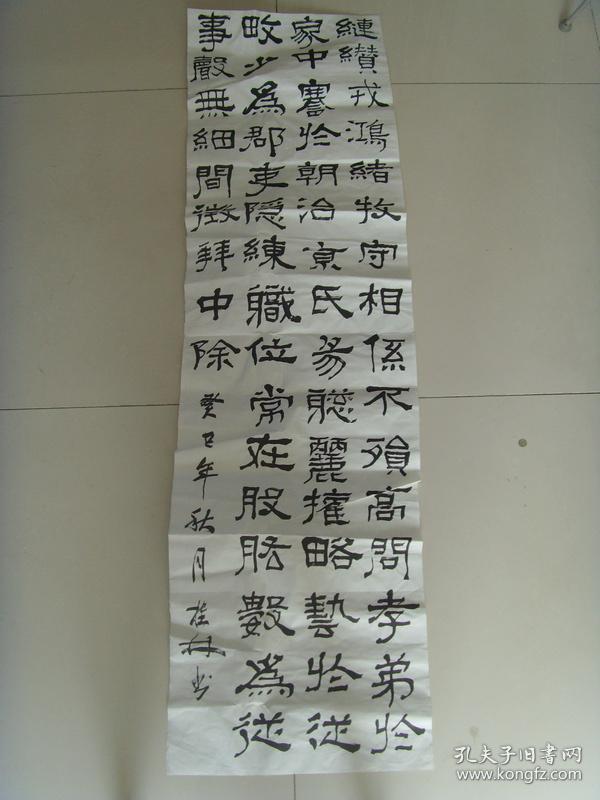 縺纘戎鴻緒牧守相係不殞高問孝弟於
家中謇於朝治京氏易聡麗權略藝於從
畋少爲郡吏隱練職位常在股肱數爲從
事聲無細間徵拜中除
癸巳年秋月桂林书
孔夫子旧書网
www.kongfz.com